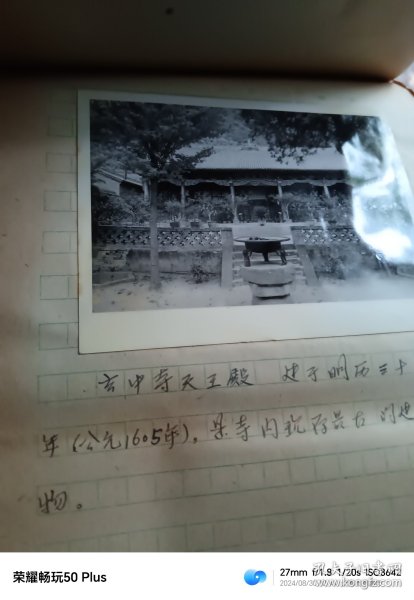 玄中寺天王殿 建于明万三十
年(公元1605年),是寺内现存最古的建
物。
荣耀畅玩50 Plus
27mm f/1.8 1/20s ISO3642
2024/08/30
www.kongfz.com